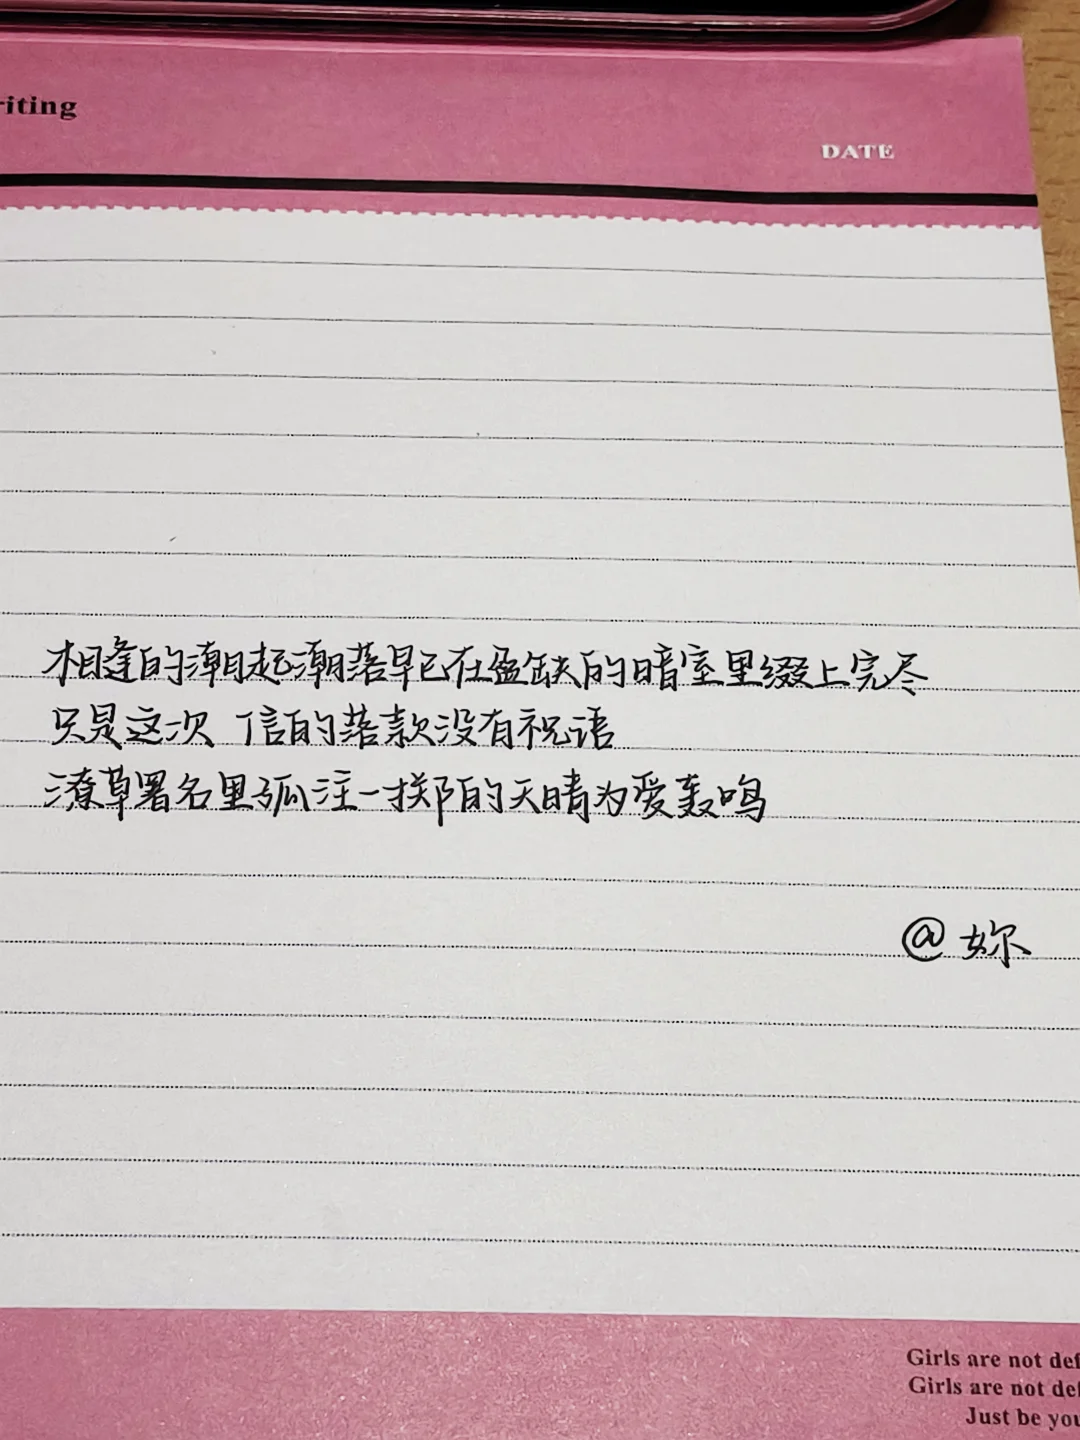 riting
DATE
相逢的潮起潮落早已在盈缺的暗室里缀上完尽
只是这次 信的落款没有祝语
潦草署名里孤注一掷的天晴为爱轰鸣
@妳
Girls are not def
Girls are not def
Just be you